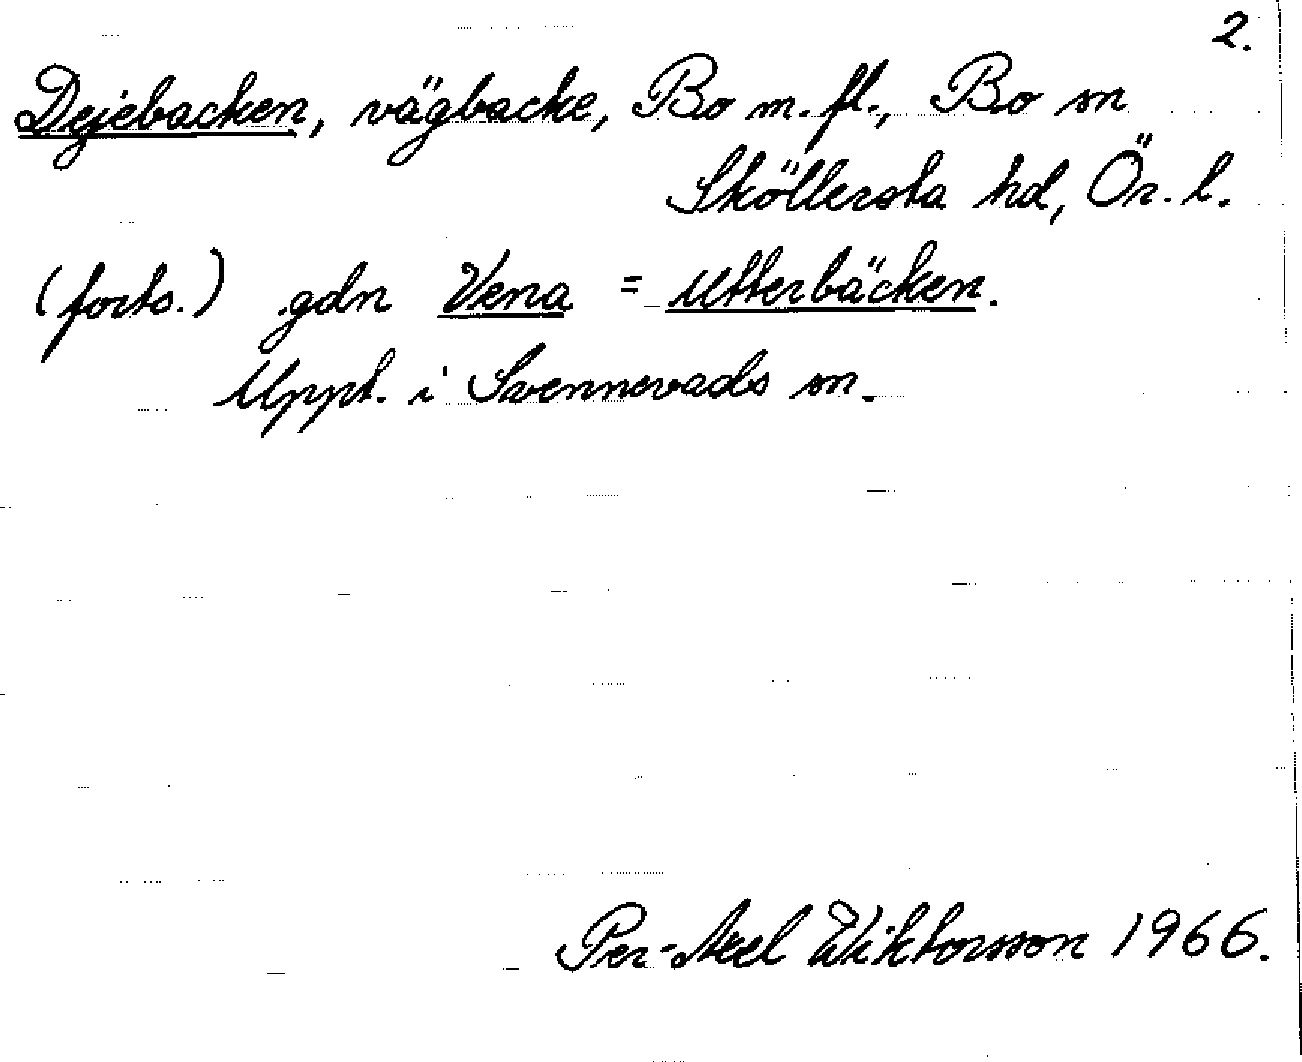 2.
Dejebacken, vägbacke, Bo m. fl., Bo sn
Sköllersta hd, Ör. l.
(forts.) gdn Vena = Utterbäcken.
Uppt. i Svennevads sn.
Per-Axel Wiktorsson 1966.